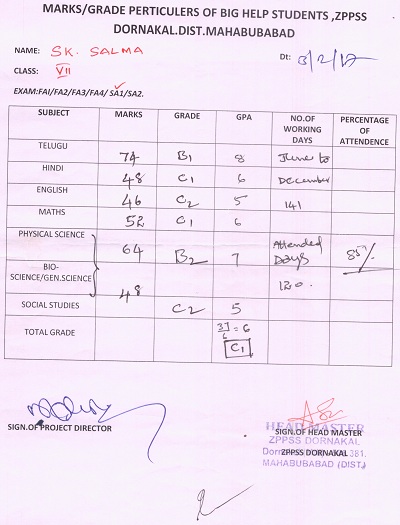 MARKS/GRADE PERTICULERS OF BIG HELP STUDENTS ,ZPPSS
DORNAKAL.DIST.MAHABUBABAD
NAME: SK. SALMA Dt: 3/2/17
CLASS: VII
EXAM:FAI/FA2/FA3/FA4/ SA1/SA2.
SUBJECT MARKS GRADE GPA NO.OF WORKING DAYS PERCENTAGE OF ATTENDENCE
TELUGU 74 B1 8 June to
HINDI 48 C1 6 December
ENGLISH 46 C2 5 141
MATHS 52 C1 6
PHYSICAL SCIENCE 64 B2 7 Attended Days 85%
BIO-SCIENCE/GEN.SCIENCE 120.
SOCIAL STUDIES 48 C2 5
TOTAL GRADE 37/6 = 6
C1
SIGN.OF PROJECT DIRECTOR
HEAD MASTER
SIGN.OF HEAD MASTER
ZPPSS DORNAKAL
ZPPSS DORNAKAL 381.
MAHABUBABAD (DIST)